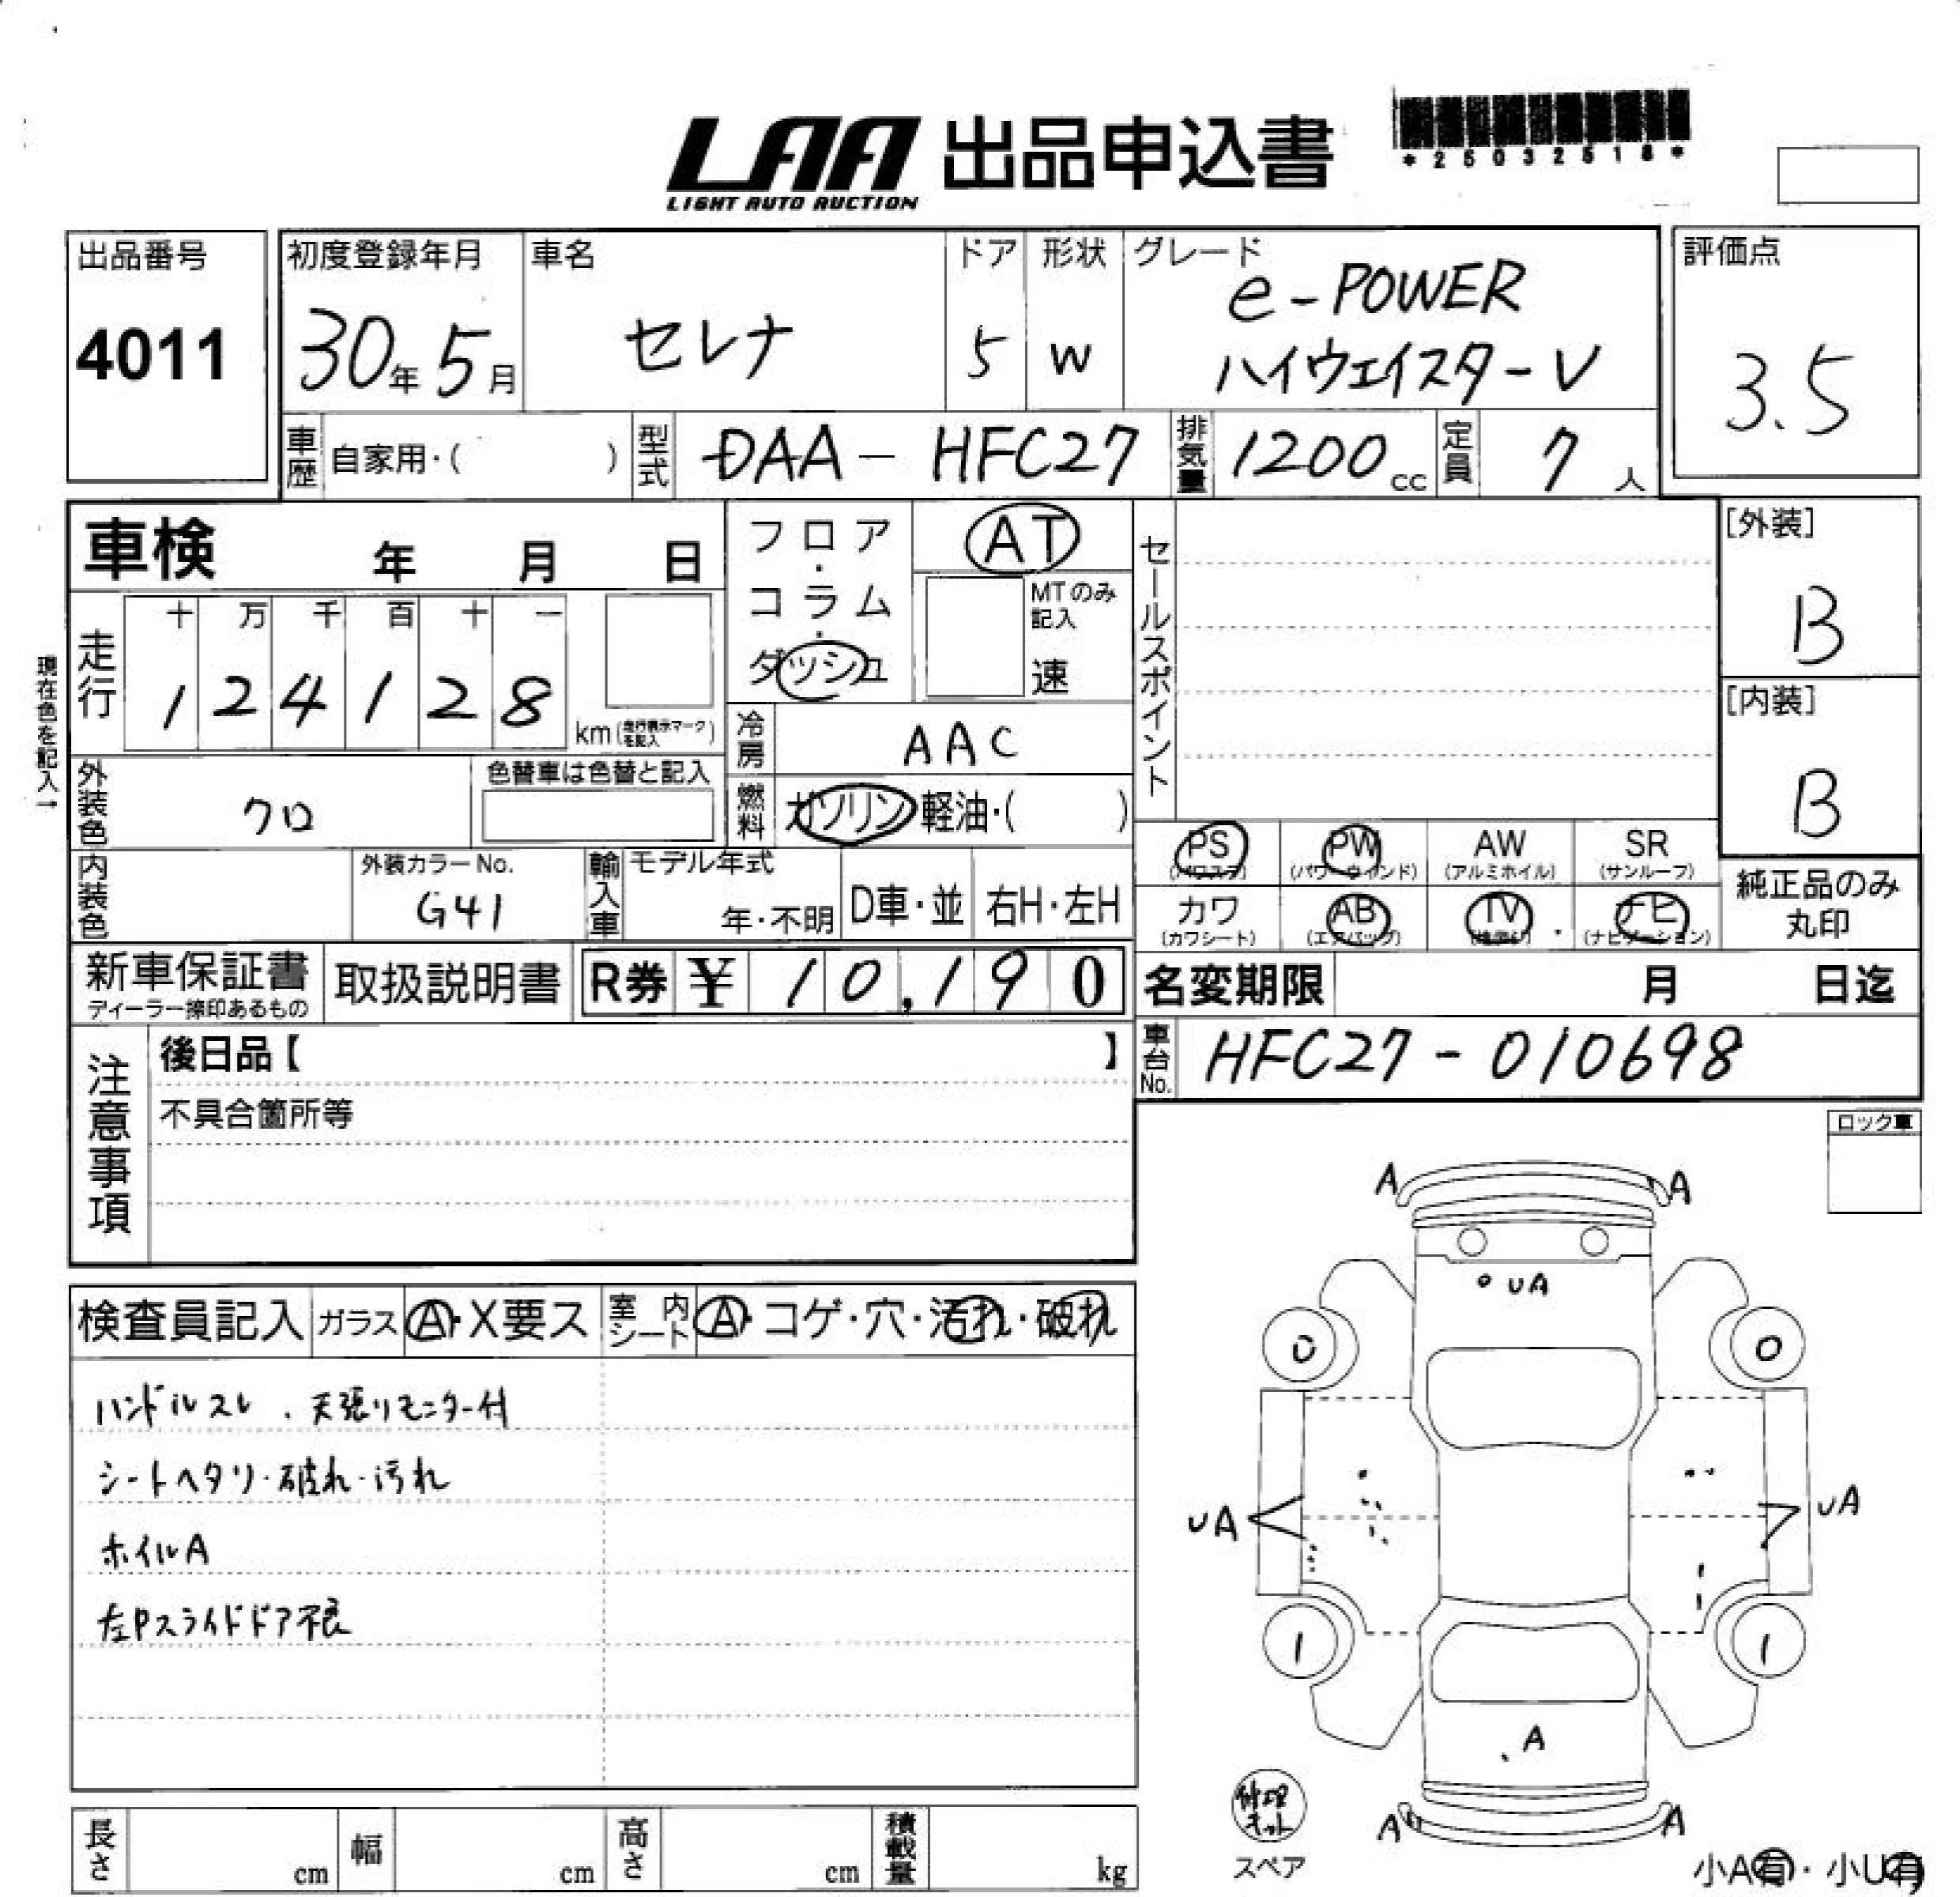 LAA 出品申込書
LIGHT AUTO AUCTION
*25032518*
出品番号
4011
初度登録年月
30年5月
車名
セレナ
ドア
5
形状
W
グレード
e-POWER
ハイウェイスターV
評価点
3.5
車歴
自家用・( )
型式
DAA-HFC27
排気量
1200cc
定員
7人
車検 年 月 日
フロア・コラム・ダッシュ
AT
MTのみ記入
速
セールスポイント
[外装]
B
[内装]
B
現在色を記入→
走行
十万千百十一
124128
km(走行表示マークを記入)
冷房
AAC
外装色
クロ
色替車は色替と記入
燃料
ガソリン 軽油・( )
PS
(パワステ)
PW
(パワーウィンド)
AW
(アルミホイル)
SR
(サンルーフ)
カワ
(カワシート)
AB
(エアバッグ)
TV
ナビ
(ナビゲーション)
純正品のみ
丸印
内装色
外装カラーNo.
G41
輸入車
モデル年式
年・不明
D車・並
右H・左H
新車保証書
ディーラー捺印あるもの
取扱説明書
R券 ¥ 10,190
名変期限 月 日迄
車台No.
HFC27-010698
注意事項
後日品【 】
不具合箇所等
ロック車
検査員記入
ガラス
A・X要ス
室内シート
A・コゲ・穴・汚れ・破れ
ハンドルスレ、天張りモニター付
シートヘタリ・破れ・汚れ
ホイルA
左Pスライドドア不良
A A
UA
0 0
UA UA
1 1
A
A A
修理キット
スペア
小A有・小U有
長さ cm
幅 cm
高さ cm
積載量 kg